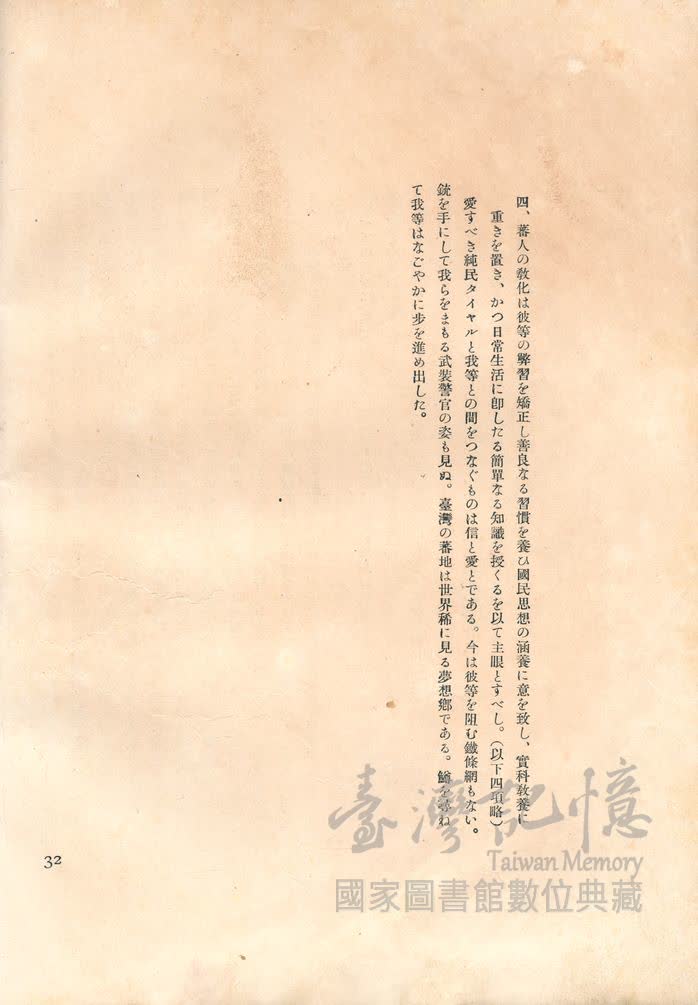 四、蕃人の敎化は彼等の弊習を矯正し善良なる習慣を養ひ國民思想の涵養に意を致し、實科敎養に
重きを置き、かつ日常生活に卽したる簡單なる知識を授くるを以て主眼とすべし。（以下四項略）
愛すべき純民タイヤルと我等との間をつなぐものは信と愛とである。今は彼等を阻む鐵條網もない。
銃を手にして我らをまもる武装警官の姿も見ぬ。臺灣の蕃地は世界稀に見る夢想鄕である。鱒を尋ね
て我等はなごやかに步を進め出した。
臺灣記憶
Taiwan Memory
國家圖書館數位典藏
32